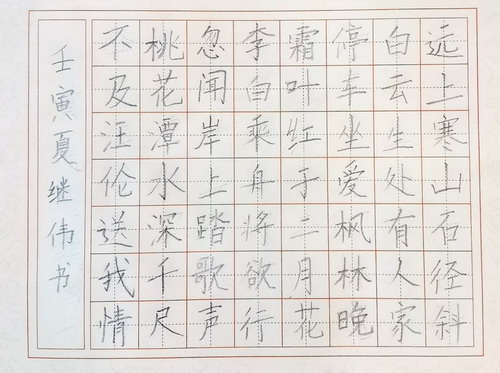 远上寒山石径斜
白云生处有人家
停车坐爱枫林晚
霜叶红于二月花
李白乘舟将欲行
忽闻岸上踏歌声
桃花潭水深千尺
不及汪伦送我情
壬寅夏继伟书